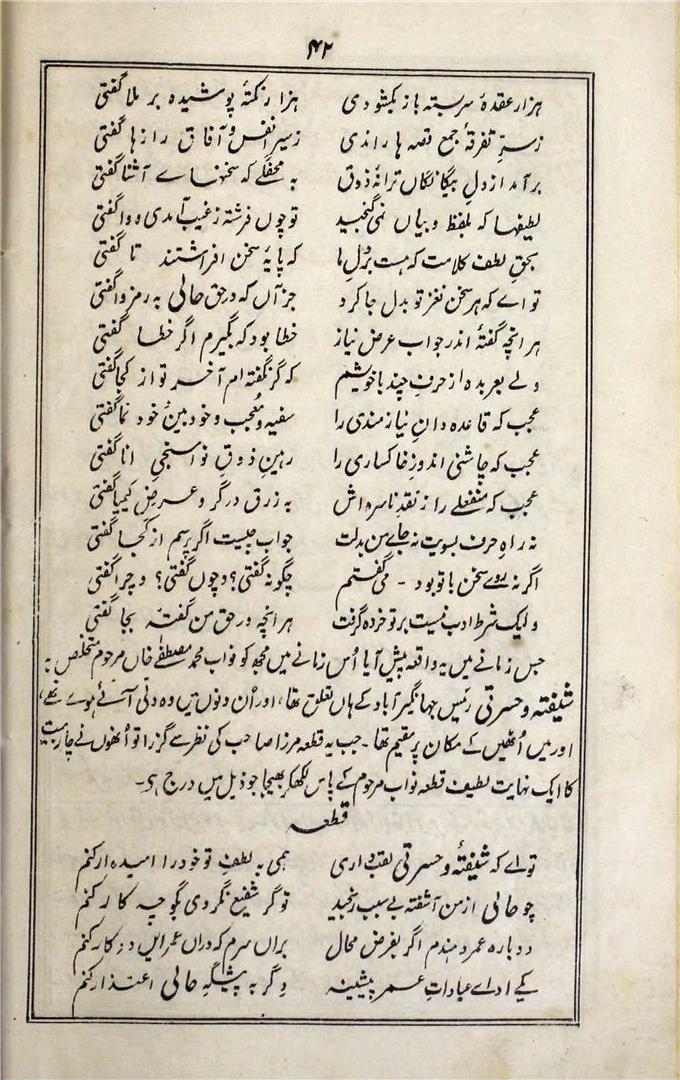 ۴۲
ہزار عقدۂ سربستہ باز بکشودی ہزار نکتۂ پوشیدہ بر ملا گفتی
ز سرِّ تفرقۂ جمع قصہ ہا راندی ز سیر انفس و آفاق رازہا گفتی
بر آمد از دلِ بیگانگاں ترانۂ ذوق بہ محفلے کہ سخنہاے آشنا گفتی
لطیفہا کہ بلفظ و بیاں نمی گنجید تو چوں فرشتہ ز غیب آمدی و وا گفتی
بحقِ لطف کلامت کہ ہست بر دلِ ما کہ پایۂ سخن افراشتند تا گفتی
تو اے کہ ہر سخن نغز تو بدل جا کرد جز آں کہ در حق حالی بہ رمز وا گفتی
ہر انچہ گفتۂ اندر جواب عرض نیاز خطا بود کہ بگیرم اگر خطا گفتی
ولے بعربدہ از حرفِ چند باخویشم کہ گر نگفتہ ام آخر تو از کجا گفتی
عجب کہ قاعدہ دانِ نیازمندی را سفیہ و مُعجب و خود بینِ خود نما گفتی
عجب کہ چاشنی اندوزِ خاکساری را رہینِ ذوقِ نواسنجیِ انا گفتی
عجب کہ منفعلے را ز نقدِ ناسرہ اش بہ زرق درگر و عرضِ کیمیا گفتی
نہ راہِ حرف بسویت نہ جاے من بدلت جواب چیست اگر پرسم از کجا گفتی
اگر نہ روے سخن با تو بود ۔ می گفتم چگونہ گفتی؟ و چوں گفتی؟ و چرا گفتی
و لیک شرط ادب نیست بر تو خردہ گرفت ہر انچہ در حق من گفتۂ بجا گفتی
جس زمانے میں یہ واقعہ پیش آیا اُس زمانے میں مجھ کو نواب محمد مصطفٰے خاں مرحوم متخلص بہ
شیفتہ و حسرتی رئیس جہانگیر آباد کے ہاں تعلق تھا، اور اُن دنوں میں وہ دلّی آئے ہوے تھے،
اور میں اُنھیں کے مکان پر مقیم تھا ۔ جب یہ قطعہ مرزا صاحب کی نظر سے گزرا تو اُنھوں نے چار بیت
کا ایک نہایت لطیف قطعہ نواب مرحوم کے پاس لکھکر بھیجا جو ذیل میں درج ہی ۔
قطعہ
تو اے کہ شیفتۂ و حسرتی لقب داری ہمی بہ لطفِ تو خود را امیدوار کنم
چو حالی از من آشفتہ بے سبب رنجید تو گر شفیع نگردی بگو چہ کار کنم
دوبارہ عمر دہندم اگر بفرض محال براں سرم کہ دراں عمر ایں دو کار کنم
یکے اداے عبادات عمر پیشینہ دگر بہ پیشگہِ حالی اعتذار کنم